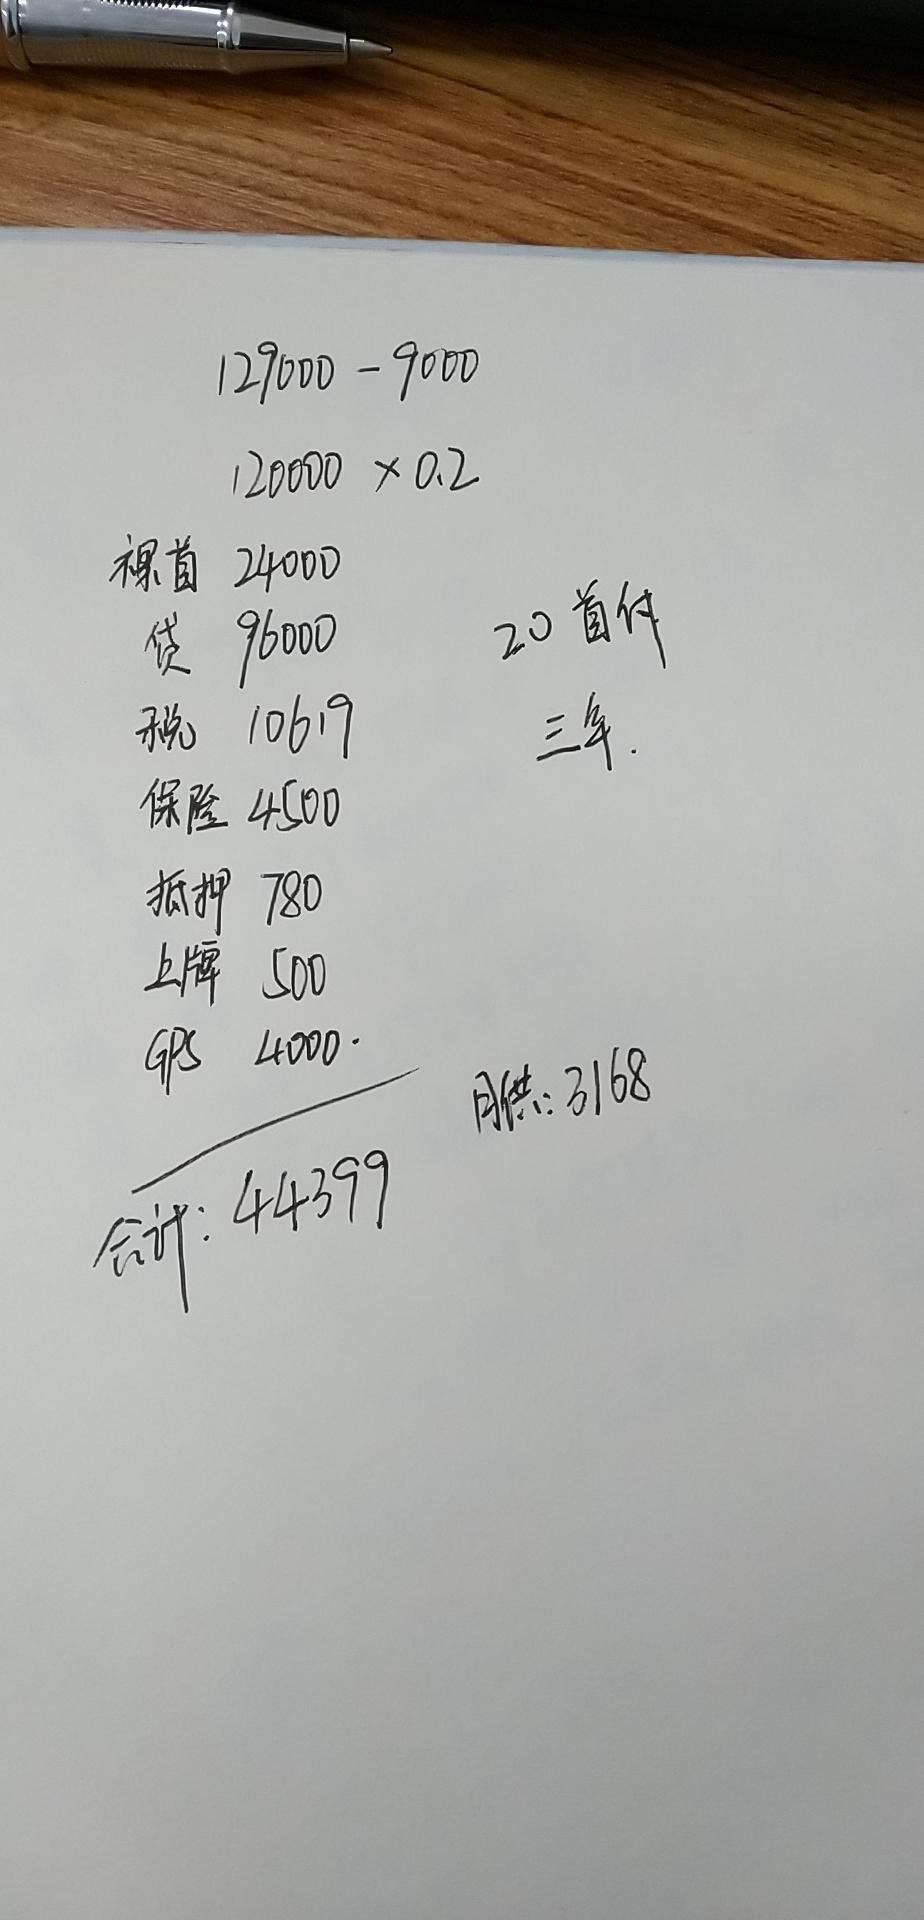 129000 - 9000
120000 × 0.2
裸首 24000
贷 96000
税 10619
保险 4500
抵押 780
上牌 500
GPS 4000.
合计: 44399
20 首付
三年.
月供: 3168